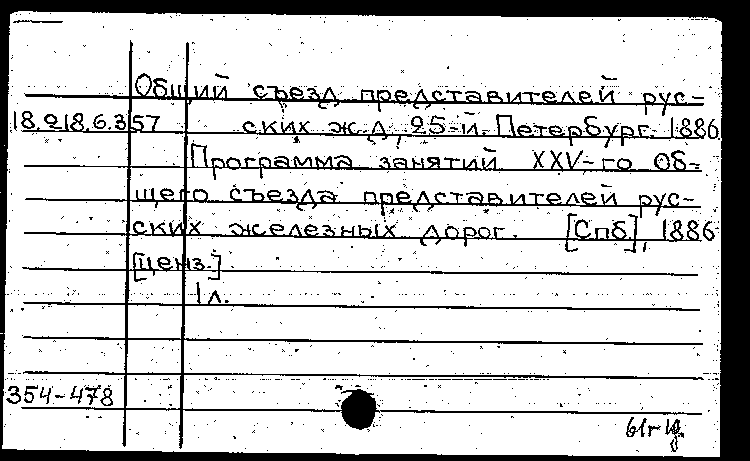 Общий съезд представителей рус-
18.218.6.357 ских ж.д., 25-й. Петербург. 1886
Программа занятий XXV-го Об-
щего съезда представителей рус-
ских железных дорог. [Спб], 1886
[ценз.]
1 л.
354-478